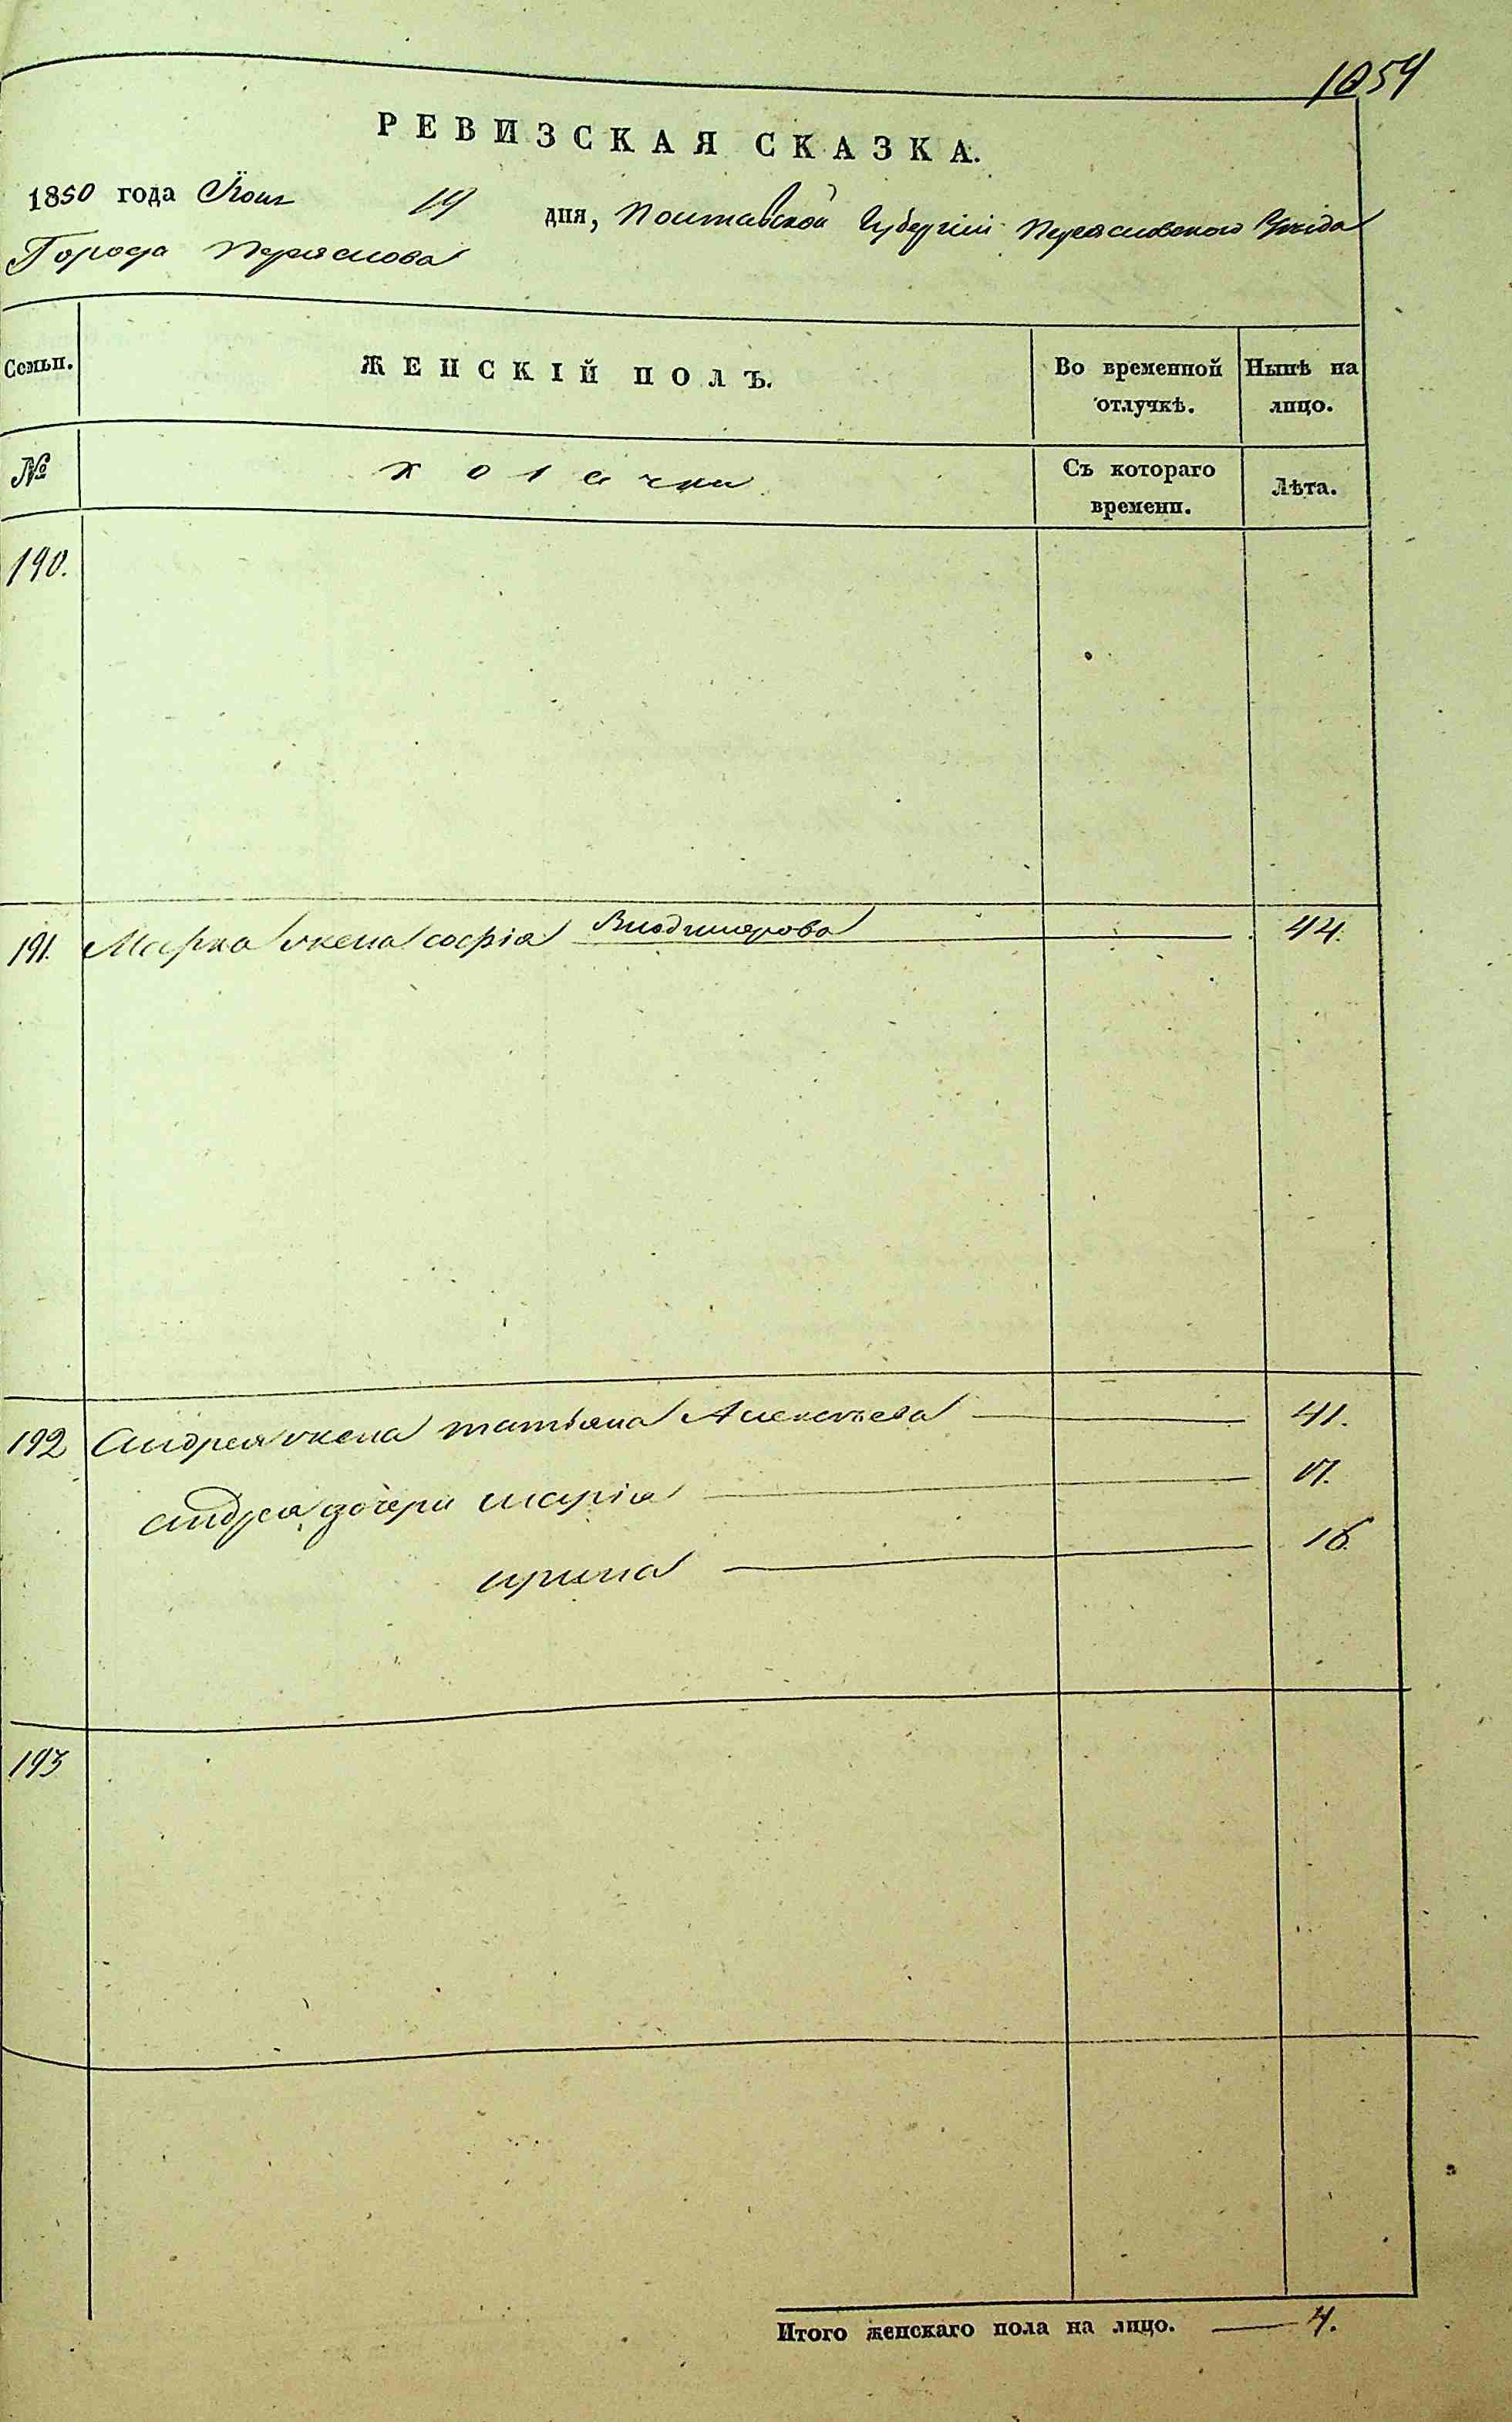 1054
РЕВИЗСКАЯ СКАЗКА.
1850 года Июня 19 дня, Полтавской Губерніи Переяславского Уезда
Города Переяслова
Семьи. ЖЕНСКІЙ ПОЛЪ. Во временной отлучкѣ. Нынѣ на лицо.
№ козачки Съ котораго времени. Лѣта.
190.
191. Марка жена софія Владимирова 44.
192 Андрея жена татьяна Алексеева 41.
андрея дочери марія 17.
ирина 16.
193
Итого женскаго пола на лицо. 4.